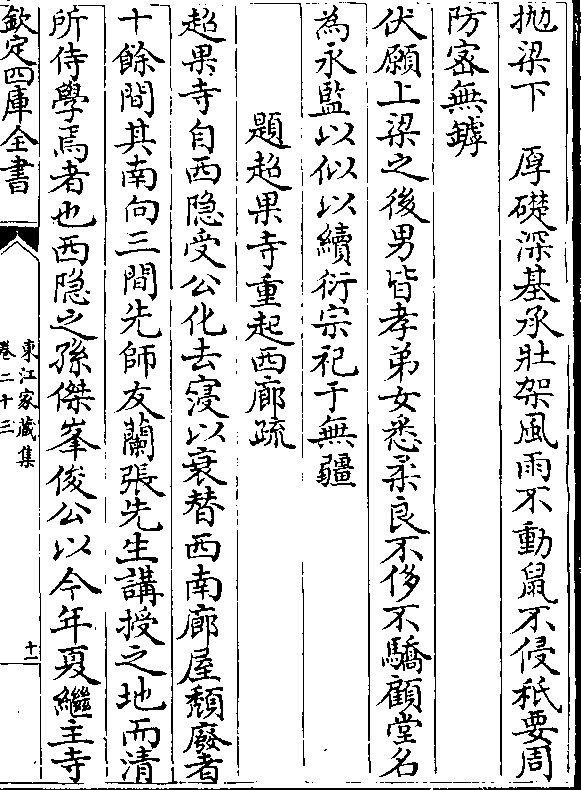 抛梁下　厚礎深基承壯架風雨不動鼠不侵秪要周
防密無罅
伏願上梁之後男皆孝弟女悉柔良不侈不驕顧堂名
為永監以似以續衍宗祀于無疆
題超果寺重起西廊疏
超果寺自西隐受公化去寖以衰替西南廊屋頽廢者
十餘間其南向三間先師友蘭張先生講授之地而清
所侍學焉者也西隐之孫傑峯俊公以今年夏繼主寺
欽定四庫全書
東江家藏集
卷二十三
十一